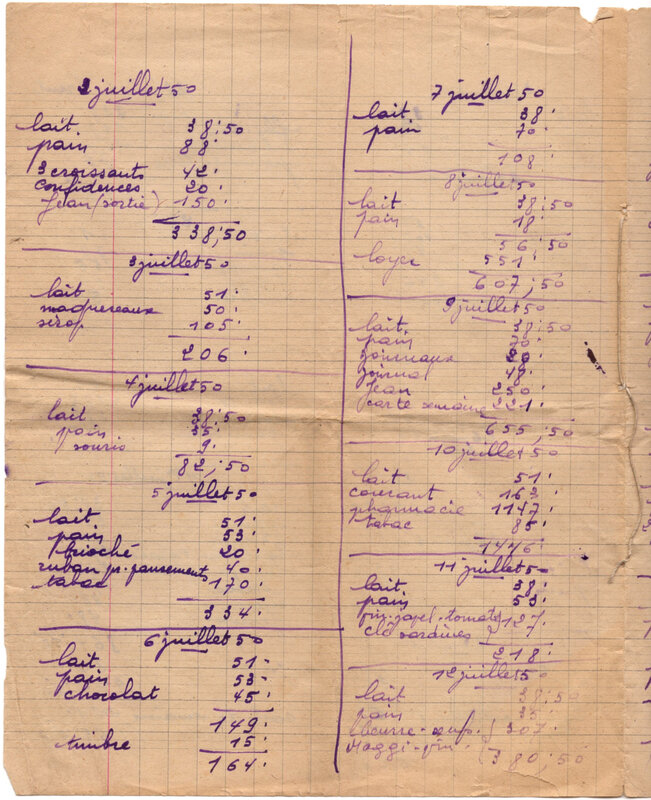 2 juillet 50
lait 38;50
pain 88·
3 croissants 42·
confidences 20·
Jean (sortie) 150·
338,50
3 juillet 50
lait 51·
maquereaux 50·
sirop 105·
206·
4 juillet 50
lait 38·50
pain 35·
souris 9·
82,50
5 juillet 50
lait 51·
pain 53·
brioché 20·
ruban pr. pansements 40·
tabac 170·
334·
6 juillet 50
lait 51-
pain 53-
chocolat 45·
149·
timbre 15·
164·
7 juillet 50
lait 38·
pain 70·
108·
8 juillet 50
lait 38;50
pain 18·
56,50
loyer 551·
607,50
9 juillet 50
lait 38;50
pain 70·
journaux 20·
journal 48·
Jean 250·
carte semaine 221·
655,50
10 juillet 50
lait 51·
courant 163·
pharmacie 1147·
tabac 85·
1446·
11 juillet 50
lait 38·
pain 53·
tomate 127·
clé sardines
218·
12 juillet 50
lait 38,50
pain 35·
beurre - oeufs 307·
Maggi - vin
380,50